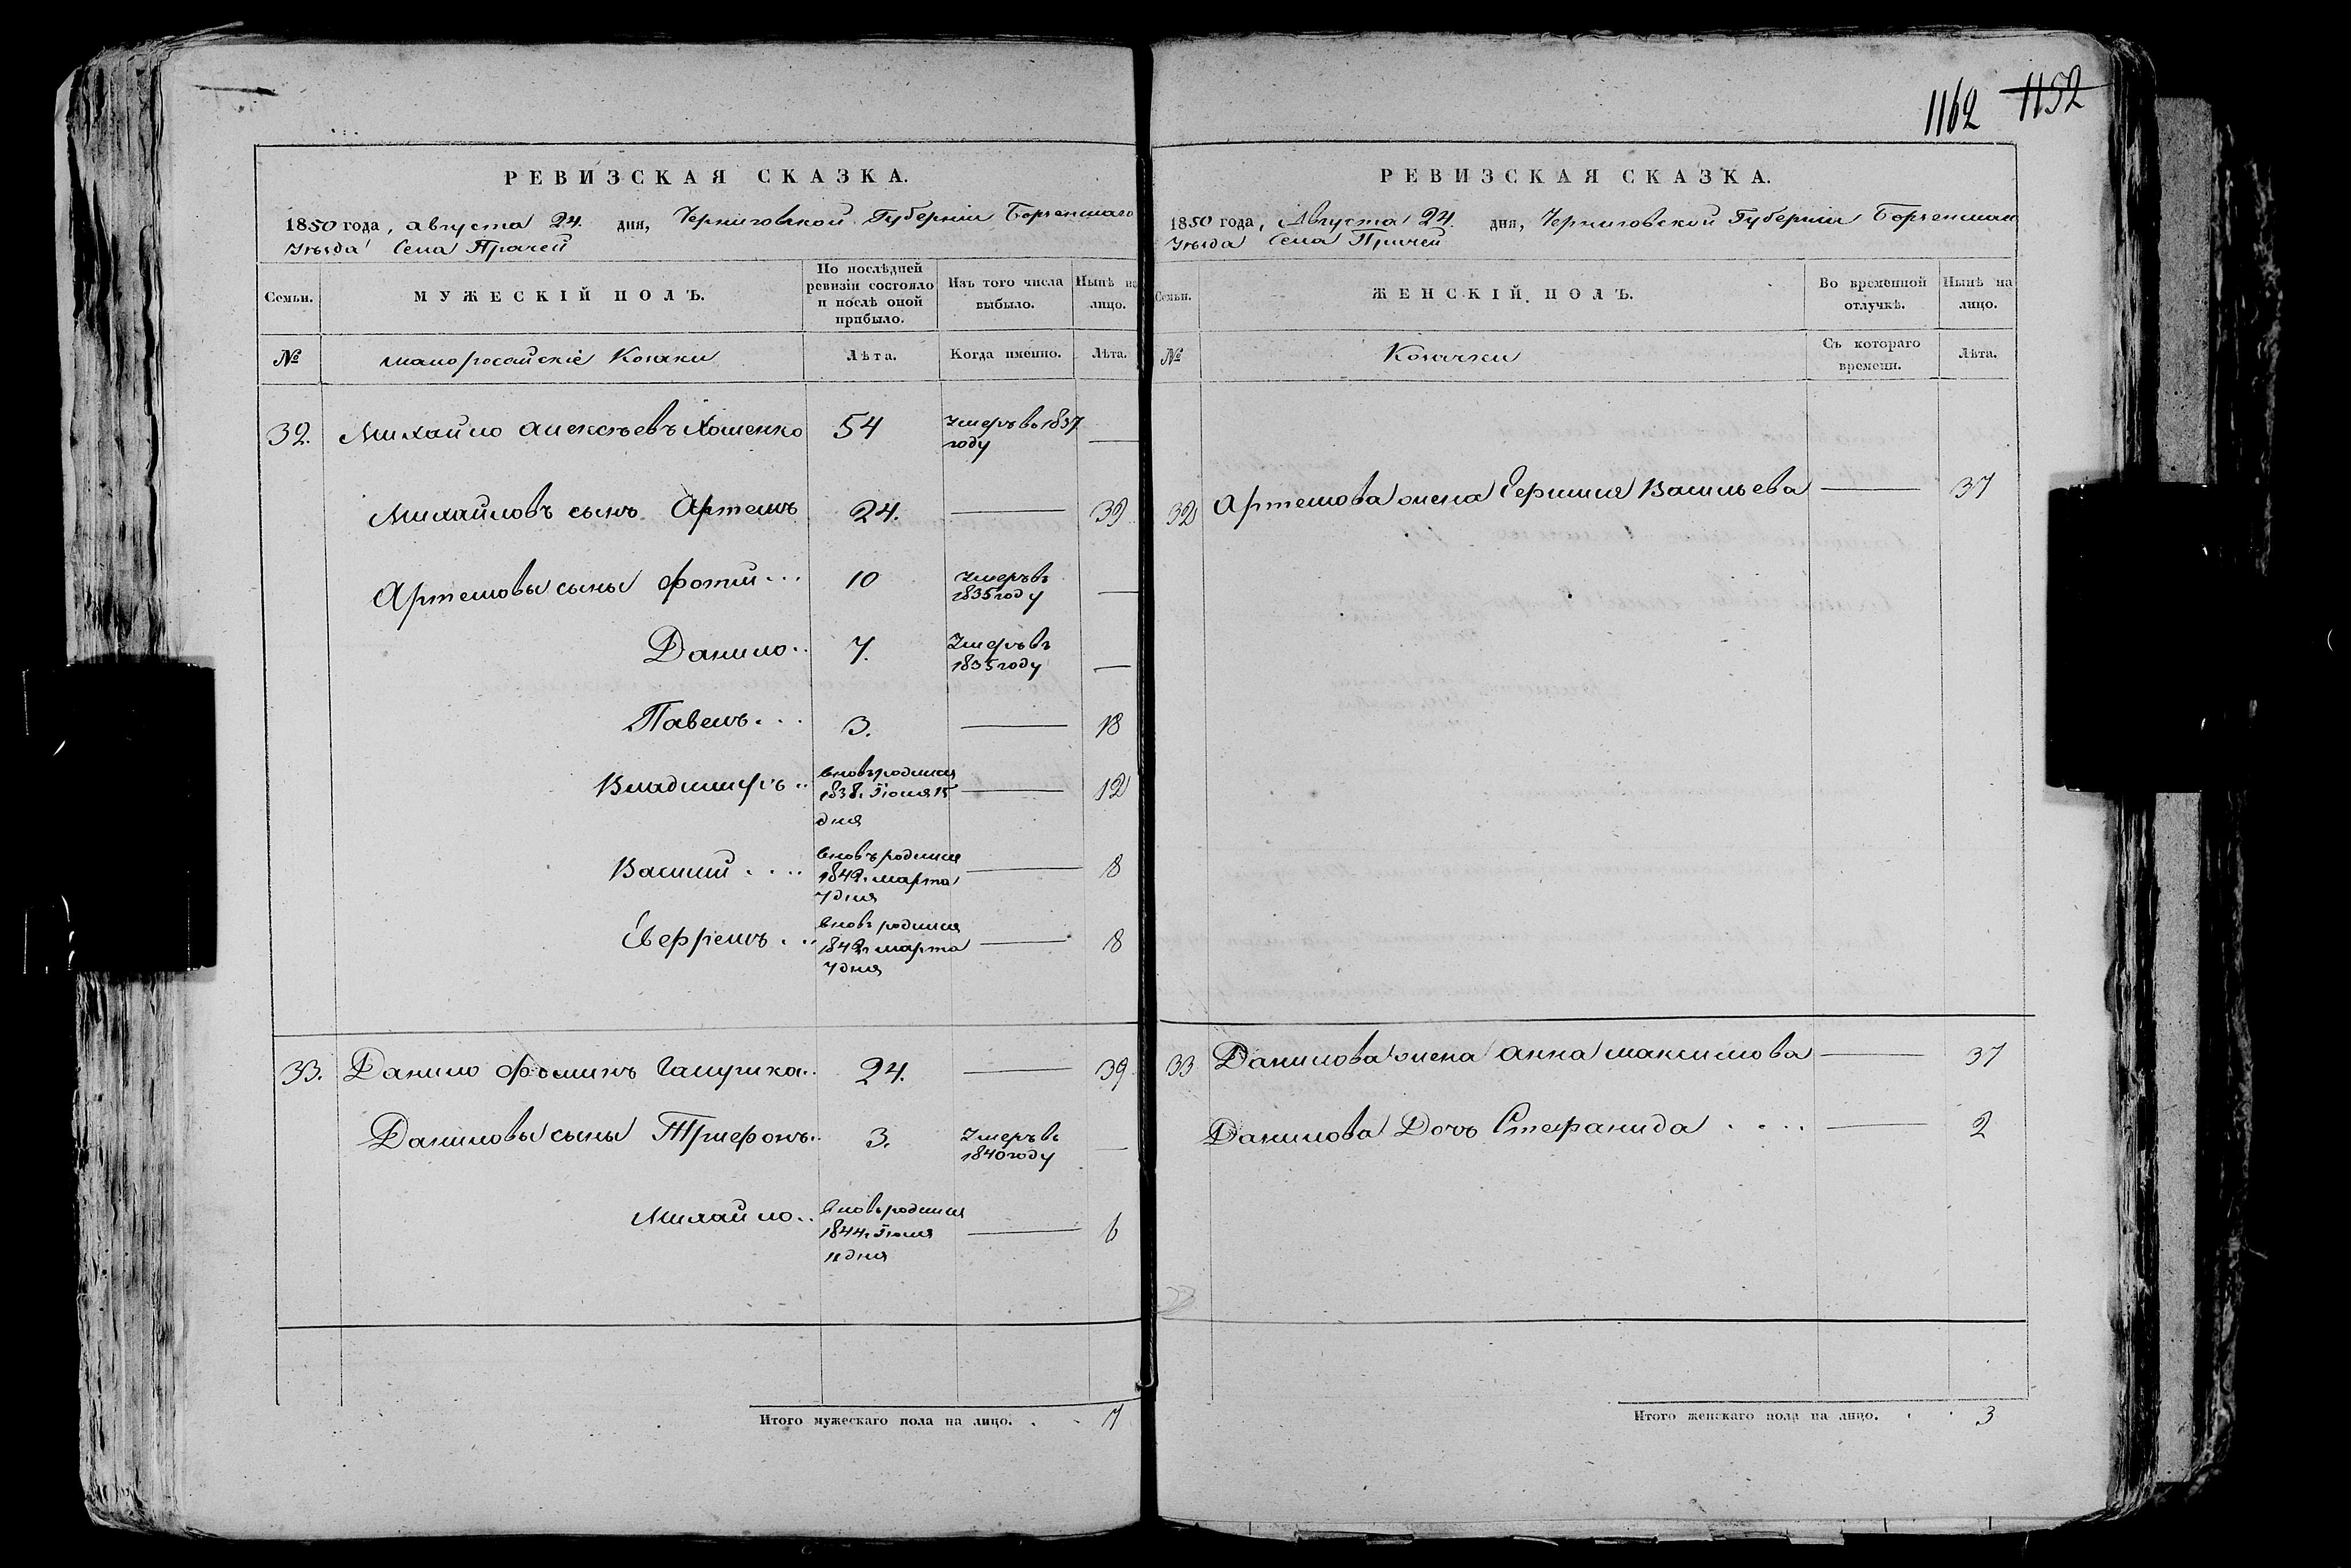 1162 1152
РЕВИЗСКАЯ СКАЗКА.
1850 года, августа 24. дня, Черниговской Губерніи Борзенскаго
Уѣзда Села Прачей
Семьи. МУЖЕСКІЙ ПОЛЪ. По послѣдней ревизіи состояло и послѣ оной прибыло. Изъ того числа выбыло. Нынѣ на лицо.
№ малоросайскіе Козаки Лѣта. Когда именно. Лѣта.
32. Михайло Алексѣевъ Хоменко 54 Умеръ во 1837 году —
Михайловъ сынъ Артемъ 24. — 39
Артемовы сыны Фотій... 10 Умеръ въ 1835 году —
Данило.. 7. Умеръ въ 1835 году —
Павелъ... 3. — 18
Владимиръ.. вновъродился 1838. Іюля 15 дня — 12
Василій.... вновъродился 1842. марта 7 дня — 8
Евфремъ... вновъродился 1842. марта 7 дня — 8
33. Данило Фоминъ Галушка.. 24. — 39
Даниловы сыны Трифонъ.. 3. Умеръ въ 1840 году —
Михайло.. вновьродился 1844. Іюля 11 дня — 6
Итого мужескаго пола на лицо. . . 7
РЕВИЗСКАЯ СКАЗКА.
1850 года, Августа 24. дня, Черниговской Губерніи Борзенскаго
Уѣзда Села Прачей
Семьи. ЖЕНСКІЙ ПОЛЪ. Во временной отлучкѣ. Нынѣ на лицо.
№ Козачки Съ котораго времени. Лѣта.
32 Артемова жена Васильева — 37
33 Данилова жена Анна Максимова — 37
Данилова Дочь Стефанида .... — 2
Итого женскаго пола на лицо. . . 3